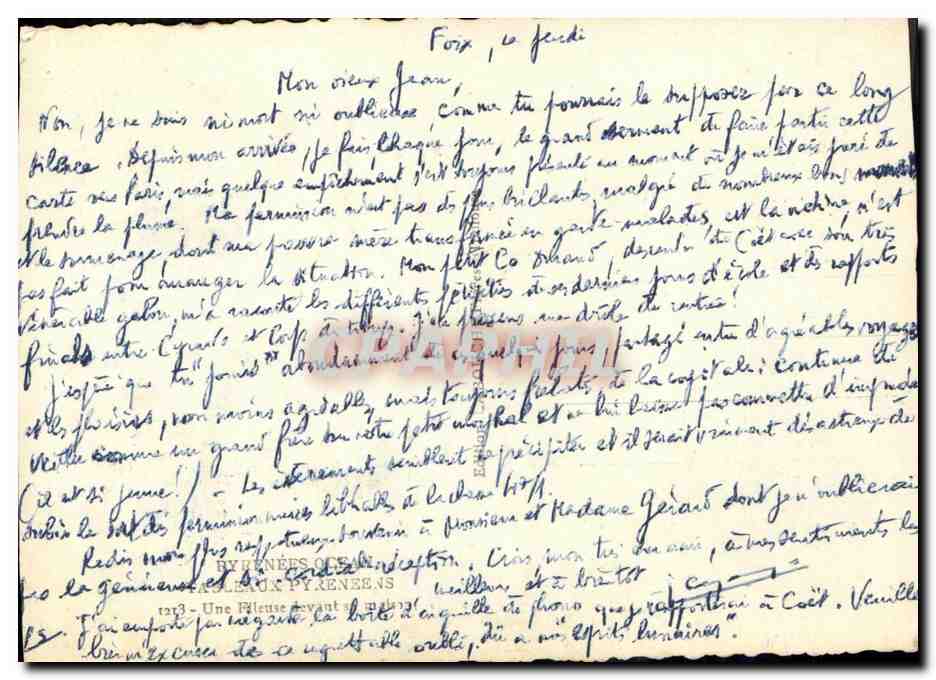 Foix, ce Jeudi
Mon vieux Jean,
Non, je ne suis ni mort ni oublieux, comme tu pourrais le supposer par ce long
silence. Depuis mon arrivée, je fais, chaque jour, le grand serment de faire partir cette
carte vers Paris, mais quelque empêchement s'est toujours présenté au moment où je m'étais paré de
prendre la plume. Ma permission n'est pas des plus brillantes, malgré de nombreux bons
et le surmenage, dont ma pauvre mère transformée en garde-malades, est la victime, n'est
pas fait pour arranger la situation. Mon petit Co Durand, descendu de Coët avec son très
vénérable galon, m'a raconté les différentes péripéties de ses derniers jours d'école et des rapports
finals entre Cyrards et Corps de troupe. J'en pressens une drôle de rentrée!
J'espère que tu "jouis" abondamment de ces quelques jours, partagé entre d'agréables voyages
et les plaisirs, non moins agréables, mais toujours frelatés, de la capitale; continue de
veiller comme un grand frère sur notre petit et ne lui laisse pas commettre d'imprudences
(il est si jeune!) - Les événements semblent se précipiter et il serait vraiment désastreux de
subir le sort des permissionnaires libérables de la classe 47/1.
Redis mon plus respectueux souvenir à Monsieur et Madame Gérard dont je n'oublierai
pas la généreuse et si cordiale réception. Crois, mon très cher ami, à mes sentiments les
meilleurs et à bientôt
PYRÉNÉES OCÉAN
TABLEAUX PYRÉNÉENS
1213 - Une Fileuse devant sa maison
PS. J'ai emporté par mégarde la boîte à aiguilles de phono que je rapporterai à Coët. Veuille
bien m'excuser de ce regrettable oubli, dû à mes "esprits lunaires".
CPAPHIL